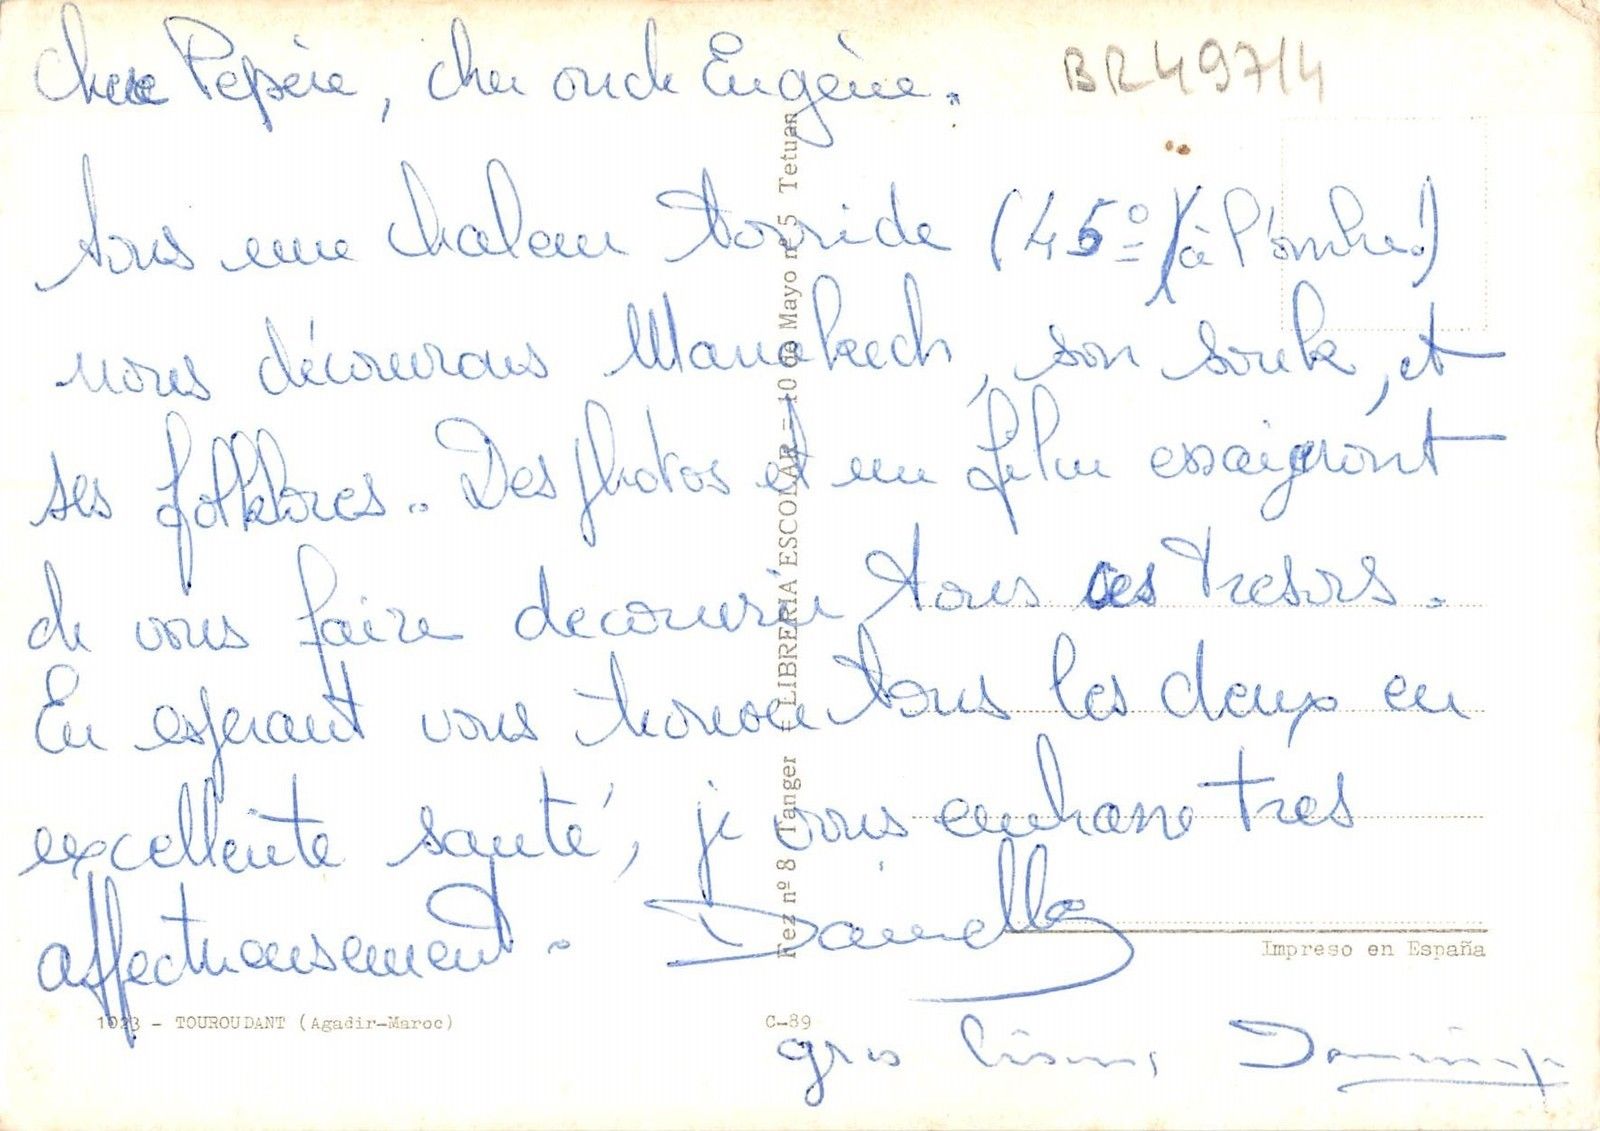 Cher Pepère, cher oncle Eugène.
BR497/4
sous une chaleur torride (45º)(à l'ombre!)
nous découvrons Marrakech, son souk, et
ses folklores.. Des photos et un film essaieront
de vous faire decouvrir tous ces tresors.
En esperant vous trouver tous les deux en
excellente santé, je vous embrasse tres
affectueusement. Danielle
Fez nº 8 Tanger - LIBRERIA ESCOLAR - 10 de Mayo nº 5 Tetuan
Impreso en España
1023 - TOUROUDANT (Agadir-Maroc)
C-89
gros bisous,